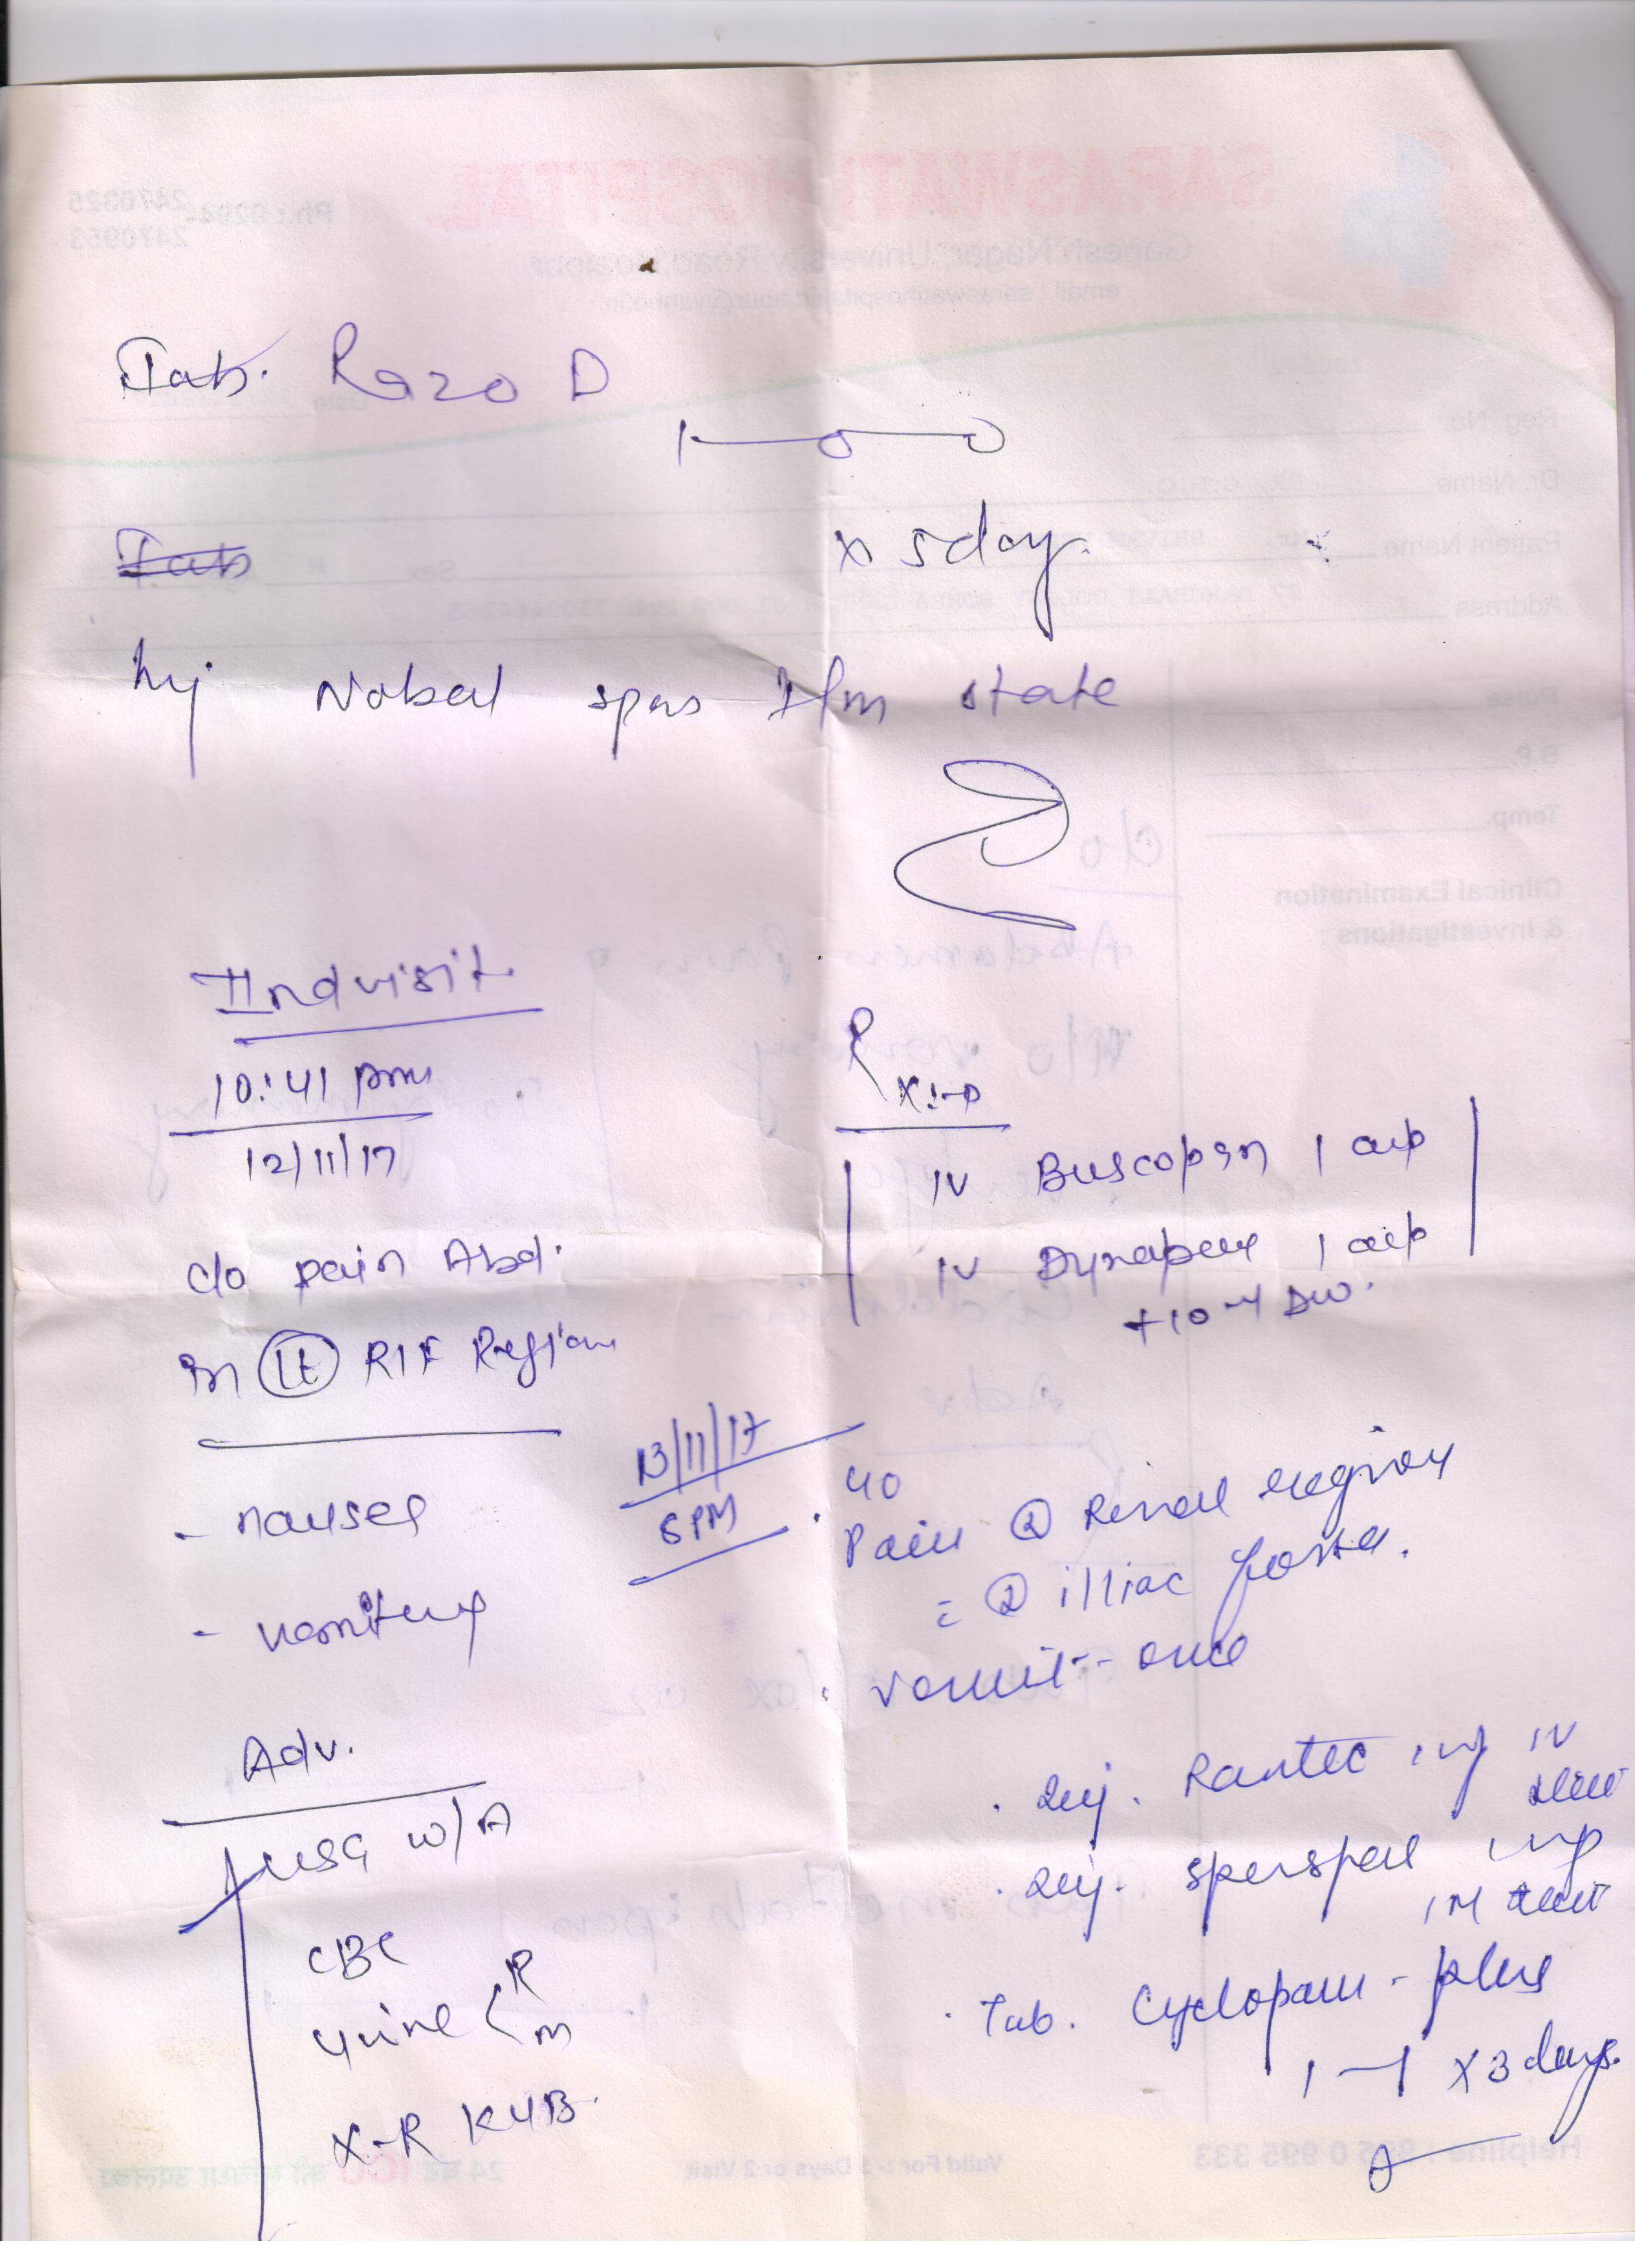 Tab. Razo D
1—0—0
x 5 day.
Tab
Inj Nobel spas I/m state
IInd visit
10:41 pm
12/11/17
c/o pain Abd.
in Lt RIF Region
- nausea
- vomiting
Adv.
USG W/A
CBC
urine < R
M
X-R KUB.
Rx
IV Buscopan 1 amp
IV Dynapar 1 amp
13/11/17
8 PM
c/o
Pain @ Renal region
illiac fossa.
vomit - once
Inj. Rantec IV
Inj.
IM
Tab. Cyclopam - plus
1—1 x 3 days.